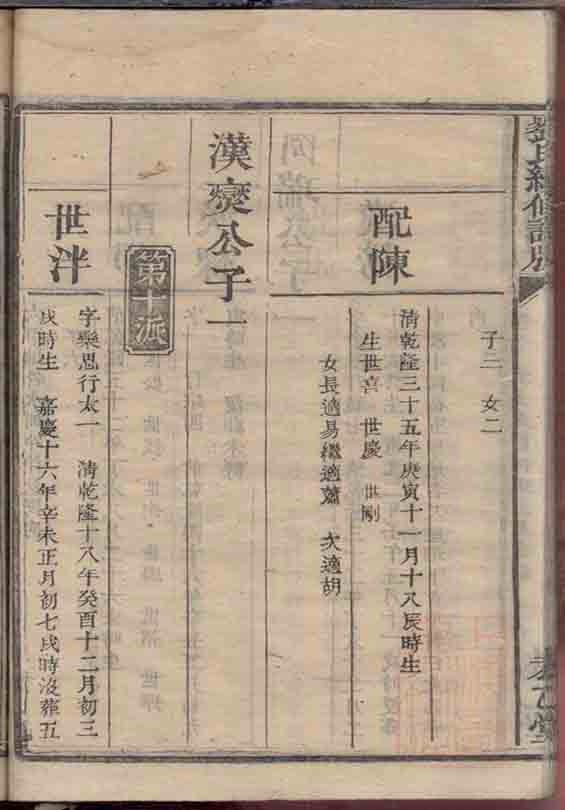 子二 女二
配陳
清乾隆三十五年庚寅十一月十八辰時生
生世喜 世慶 世剛
女長適易繼適蕭 次適胡
漢奕公子一
第十派
世泮
字樂思行太一 清乾隆十八年癸酉十二月初三
戌時生 嘉慶十六年辛未正月初七戌時沒葬五